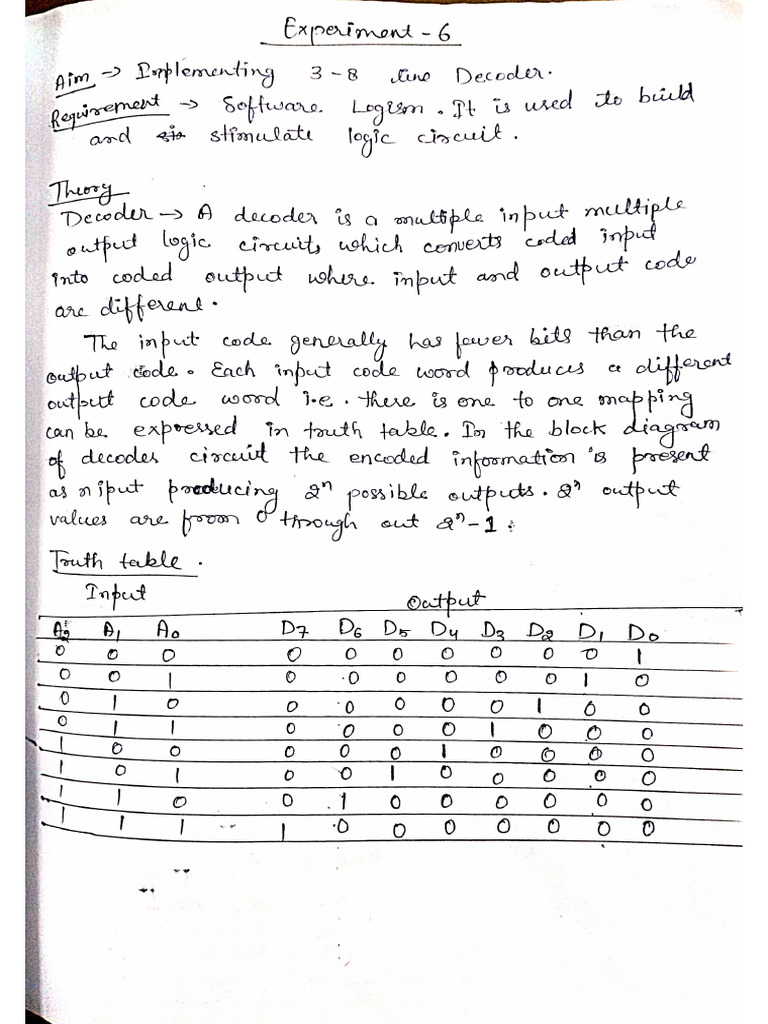 Experiment - 6
Aim → Implementing 3-8 line Decoder.
Requirement → Software Logism. It is used to build
and stimulate logic circuit.
Theory
Decoder → A decoder is a multiple input multiple
output logic circuits which converts coded input
into coded output where input and output code
are different.
The input code generally has fewer bits than the
output code. Each input code word produces a different
output code word i.e. there is one to one mapping
can be expressed in truth table. In the block diagram
of decodes circuit the encoded information is present
as n iput producing 2ⁿ possible outputs. 2ⁿ output
values are from 0 through out 2ⁿ-1.
Truth table.
Input Output
A₂ A₁ A₀ D7 D6 D5 D4 D3 D2 D1 D0
0 0 0 0 0 0 0 0 0 0 1
0 0 1 0 0 0 0 0 0 1 0
0 1 0 0 0 0 0 0 1 0 0
0 1 1 0 0 0 0 1 0 0 0
1 0 0 0 0 0 1 0 0 0 0
1 0 1 0 0 1 0 0 0 0 0
1 1 0 0 1 0 0 0 0 0 0
1 1 1 1 0 0 0 0 0 0 0